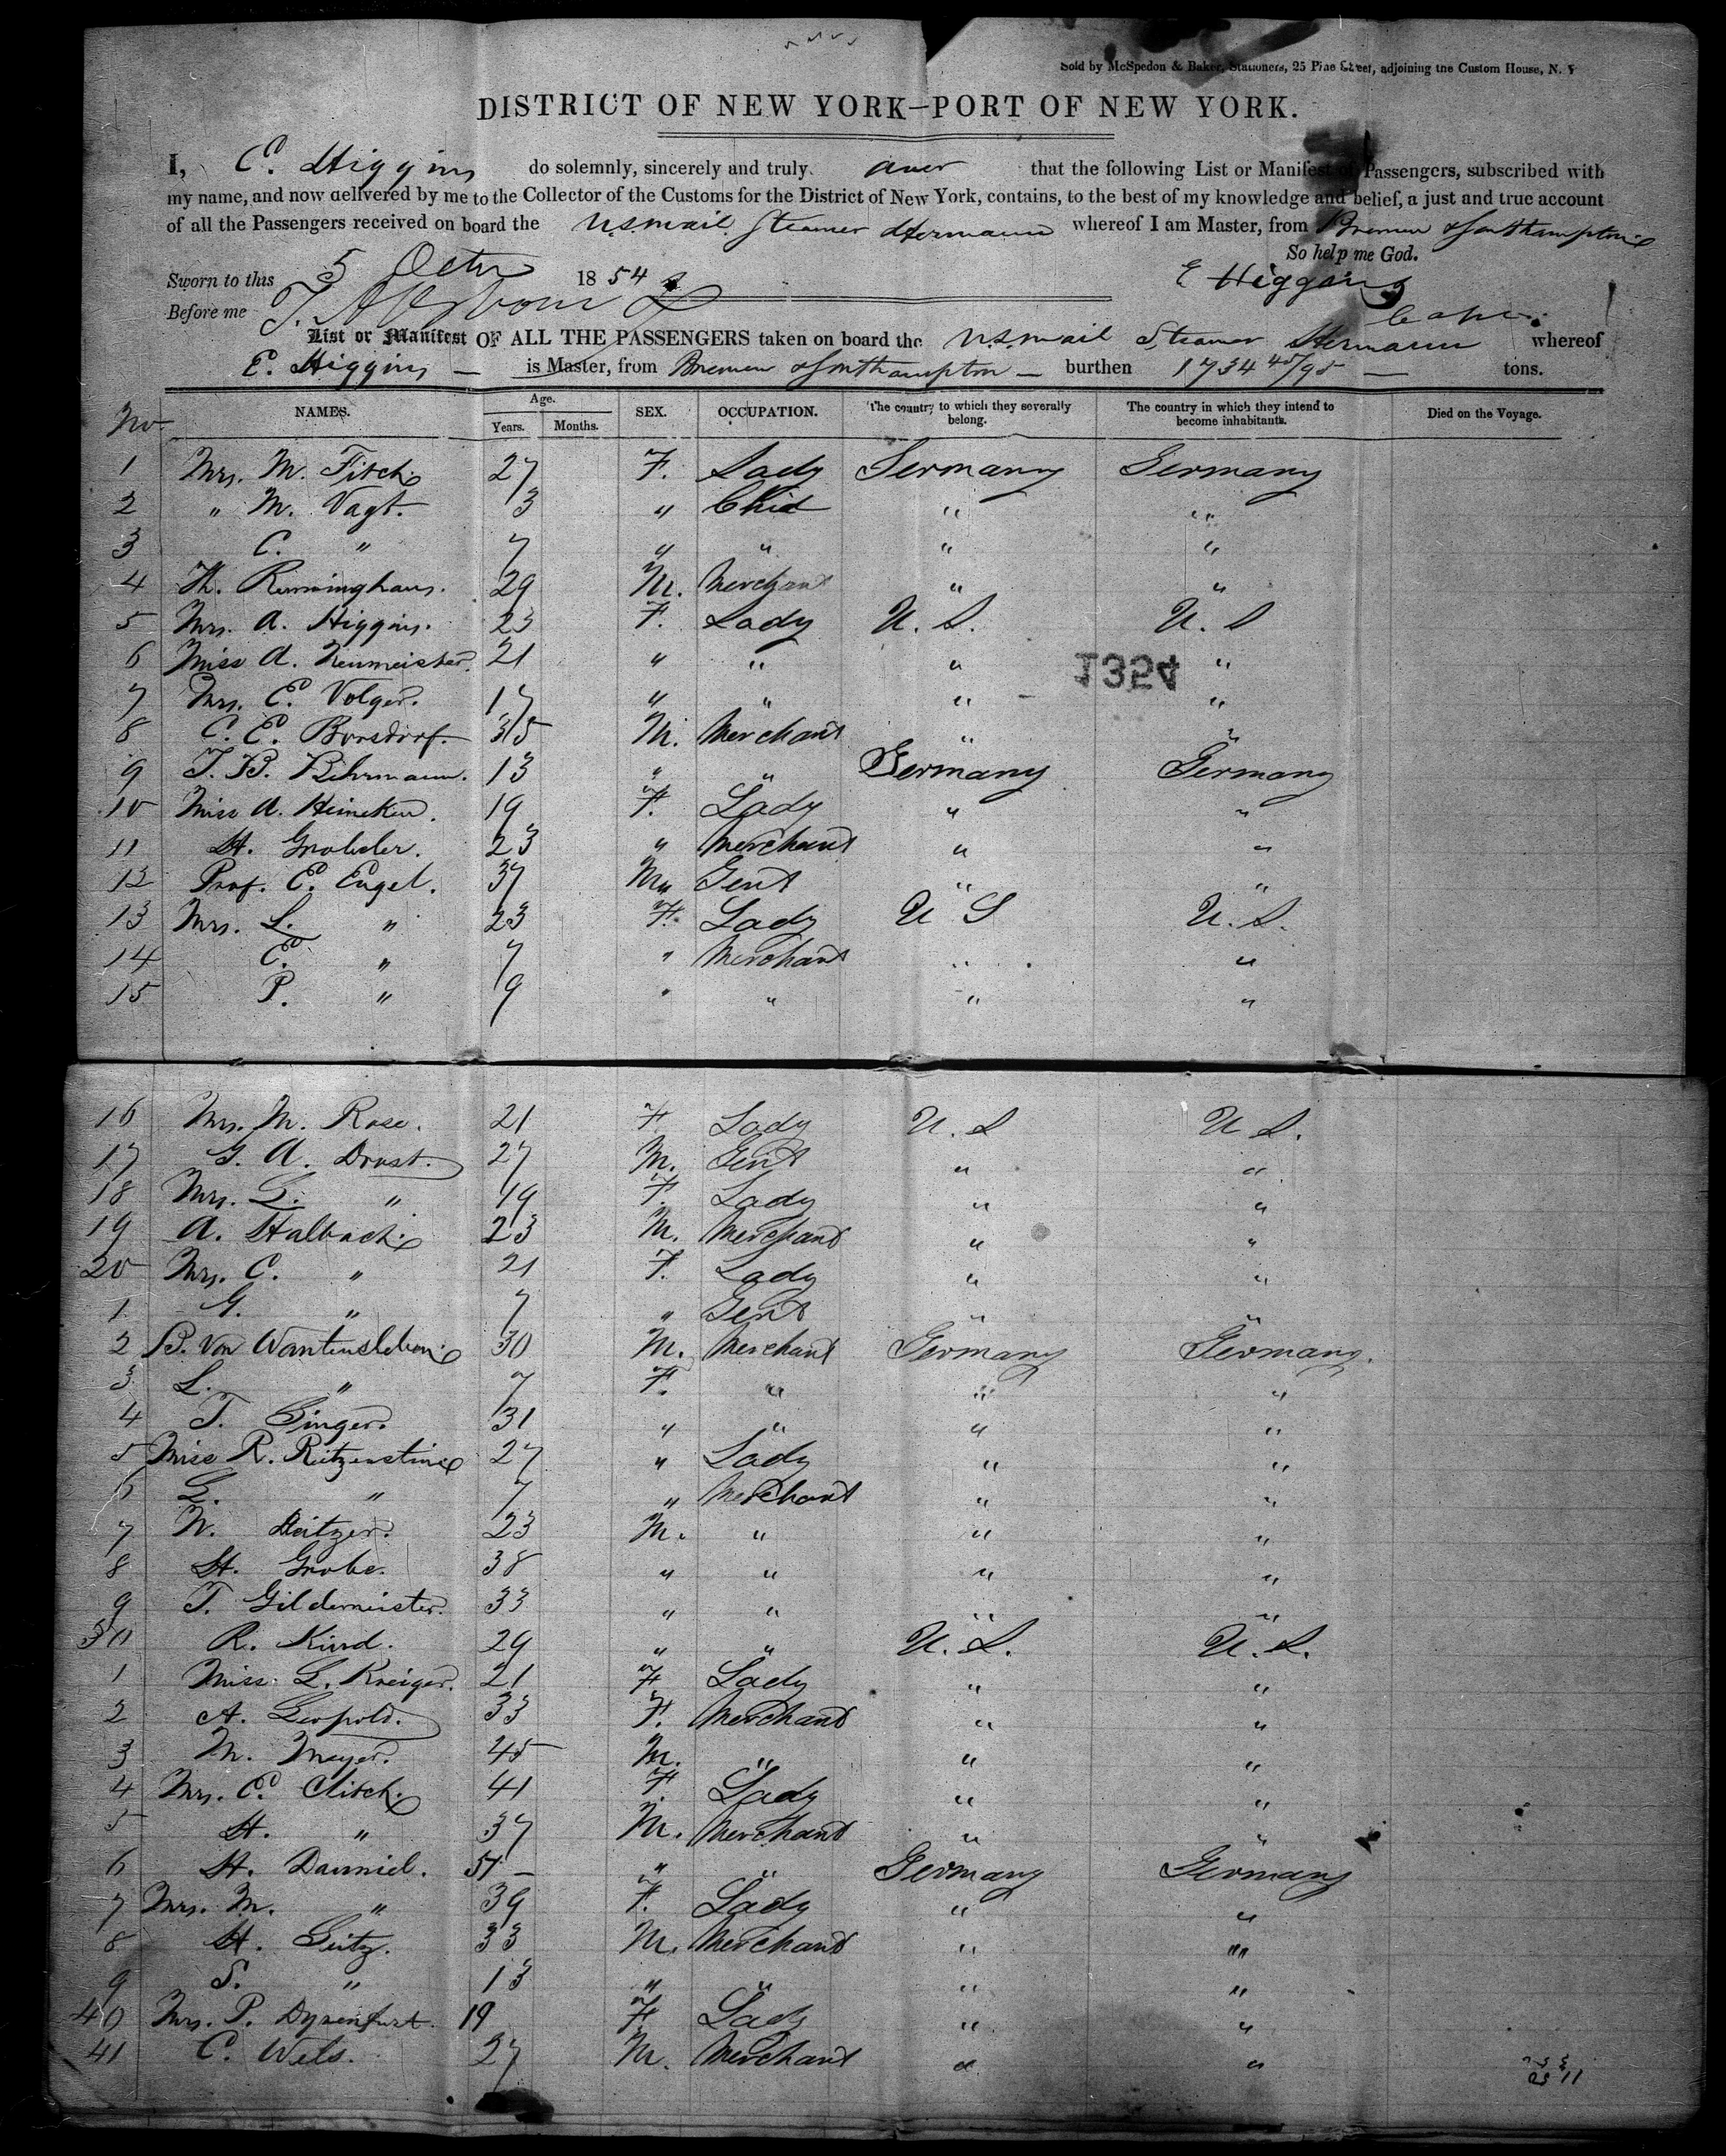 Sold by McSpedon & Baker, Stationers, 25 Pine Street, adjoining the Custom House, N. Y
DISTRICT OF NEW YORK—PORT OF NEW YORK.
I, E. Higgins do solemnly, sincerely and truly aver that the following List or Manifest of Passengers, subscribed with
my name, and now delivered by me to the Collector of the Customs for the District of New York, contains, to the best of my knowledge and belief, a just and true account
of all the Passengers received on board the U.S. mail Steamer Hermann whereof I am Master, from Bremen & Southampton
So help me God.
Sworn to this 5 Octr 1854
E Higgins
Before me
List or Manifest OF ALL THE PASSENGERS taken on board the U.S. mail Steamer Hermann whereof
E. Higgins — is Master, from Bremen & Southampton — burthen 1734 45/95 — tons.
No. NAMES. Age. Years. Months. SEX. OCCUPATION. The country to which they severally belong. The country in which they intend to become inhabitants. Died on the Voyage.
1 Mrs. M. Fitch 27 F. Lady Germany Germany
2 " M. Vagt. 3 " Child " "
3 C. " 7 " " " "
4 Th. Rumminghaus. 29 M. Merchant " "
5 Mrs. A. Higgins. 23 F. Lady U. S. U. S
6 Miss A. Neumeister. 21 " " " "
1354
7 Mrs. E. Volger. 17 " " " "
8 C. E. Borsdorf. 35 M. Merchant " "
9 J. B. Bihrmann. 13 " " Germany Germany
10 Miss A. Heineken. 19 F. Lady " "
11 H. 23 " Merchant " "
12 Prof. E. Engel. 37 M. Gent " "
13 Mrs. L. " 23 F. Lady U S U. S.
14 E. " 7 " Merchant " "
15 P. " 9 " " " "
16 Mrs. M. Rose. 21 F Lady U. S U S.
17 G. A. Drust. 27 M. Gent " "
18 Mrs. L. " 19 F. Lady " "
19 A. Halbach 23 M. Merchant " "
20 Mrs. C. " 21 F. Lady " "
1 G. " 7 " Gent " "
2 B. von Wantensleben 30 M. Merchant Germany Germany.
3 L. " 7 F. " " "
4 T. Singer. 31 " " " "
5 Miss R. Ritzenstine 27 " Lady " "
6 L. " 7 " Merchant " "
7 W. 23 M. " " "
8 H. Grobe. 38 " " " "
9 T. Gildermeister. 33 " " " "
30 R. Kind. 29 " " U. S. U. S.
1 Miss L. Kreiger. 21 F Lady " "
2 A. Leopold. 33 F. Merchant " "
3 M. Meyer. 45 M. " " "
4 Mrs. E. Clitch 41 F Lady " "
5 H. " 37 M. Merchant " "
6 H. Daumiel. 57 — " " Germany Germany
7 Mrs. M. " 39 F. Lady " "
8 H. Seitz. 33 M. Merchant " "
9 S. " 13 " " " "
40 Mrs. P. Dyrenfurt. 19 F Lady " "
41 C. Wels. 27 M. Merchant " "